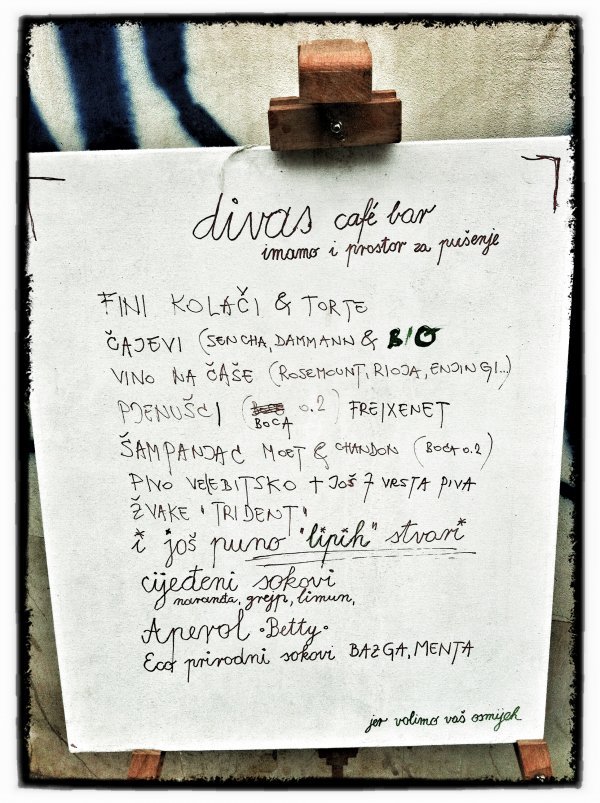 divas café bar
imamo i prostor za pušenje
FINI KOLAČI & TORTE
ČAJEVI (SENCHA, DAMMANN & BIO
VINO NA ČAŠE (ROSEMOUNT, RIOJA, ENJINGI...)
PJENUŠCI ( 0.2) FREIXENET
BOCA
ŠAMPANJAC MOET & CHANDON (BOCA 0.2)
PIVO VELEBITSKO + JOŠ 7 VRSTA PIVA
ŽVAKE "TRIDENT"
i još puno "lipih" stvari
cijeđeni sokovi
naranđa, grejp, limun,
Aperol · Betty ·
Eco prirodni sokovi BAZGA, MENTA
jer volimo vaš osmijeh